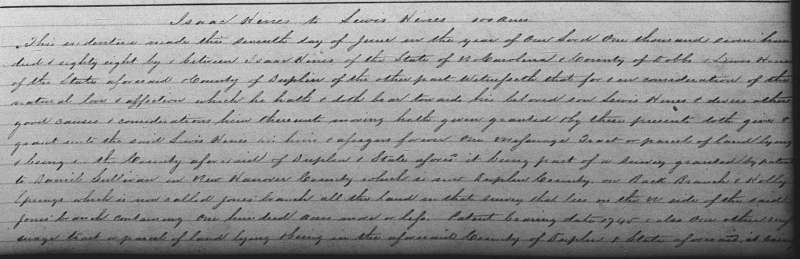 Isaac Hines to Lewis Hines 100 Acres
This indenture made this seventh day of June in the year of our Lord one thousand seven hun
dred & eighty eight by & between Isaac Hines of the State of N Carolina & County of Dobbs & Lewis Hines
of the State aforesaid & County of Duplin of the other part Witnesseth that for & in consideration of the
natural love & affection which he hath & doth bear towards his beloved son Lewis Hines & divers other
good causes & considerations him thereunto moving hath given granted & by these presents doth give &
grant unto the said Lewis Hines his heirs & assigns forever One Messuage Tract or parcel of land lying
& being in the County aforesaid of Duplin & State afores^d it being part of a survey granted by patent
to Daniel Sullivan in New Hanover County which is now Duplin County on Back Branch & Holly
Springs which is now called Jones branch all the land in that survey that lies on the N side of the said
Jones branch containing One hundred acres more or less Patent bearing date 1745 & also One other mes
suage tract or parcel of land lying & being in the aforesaid County of Duplin & State aforesaid it being